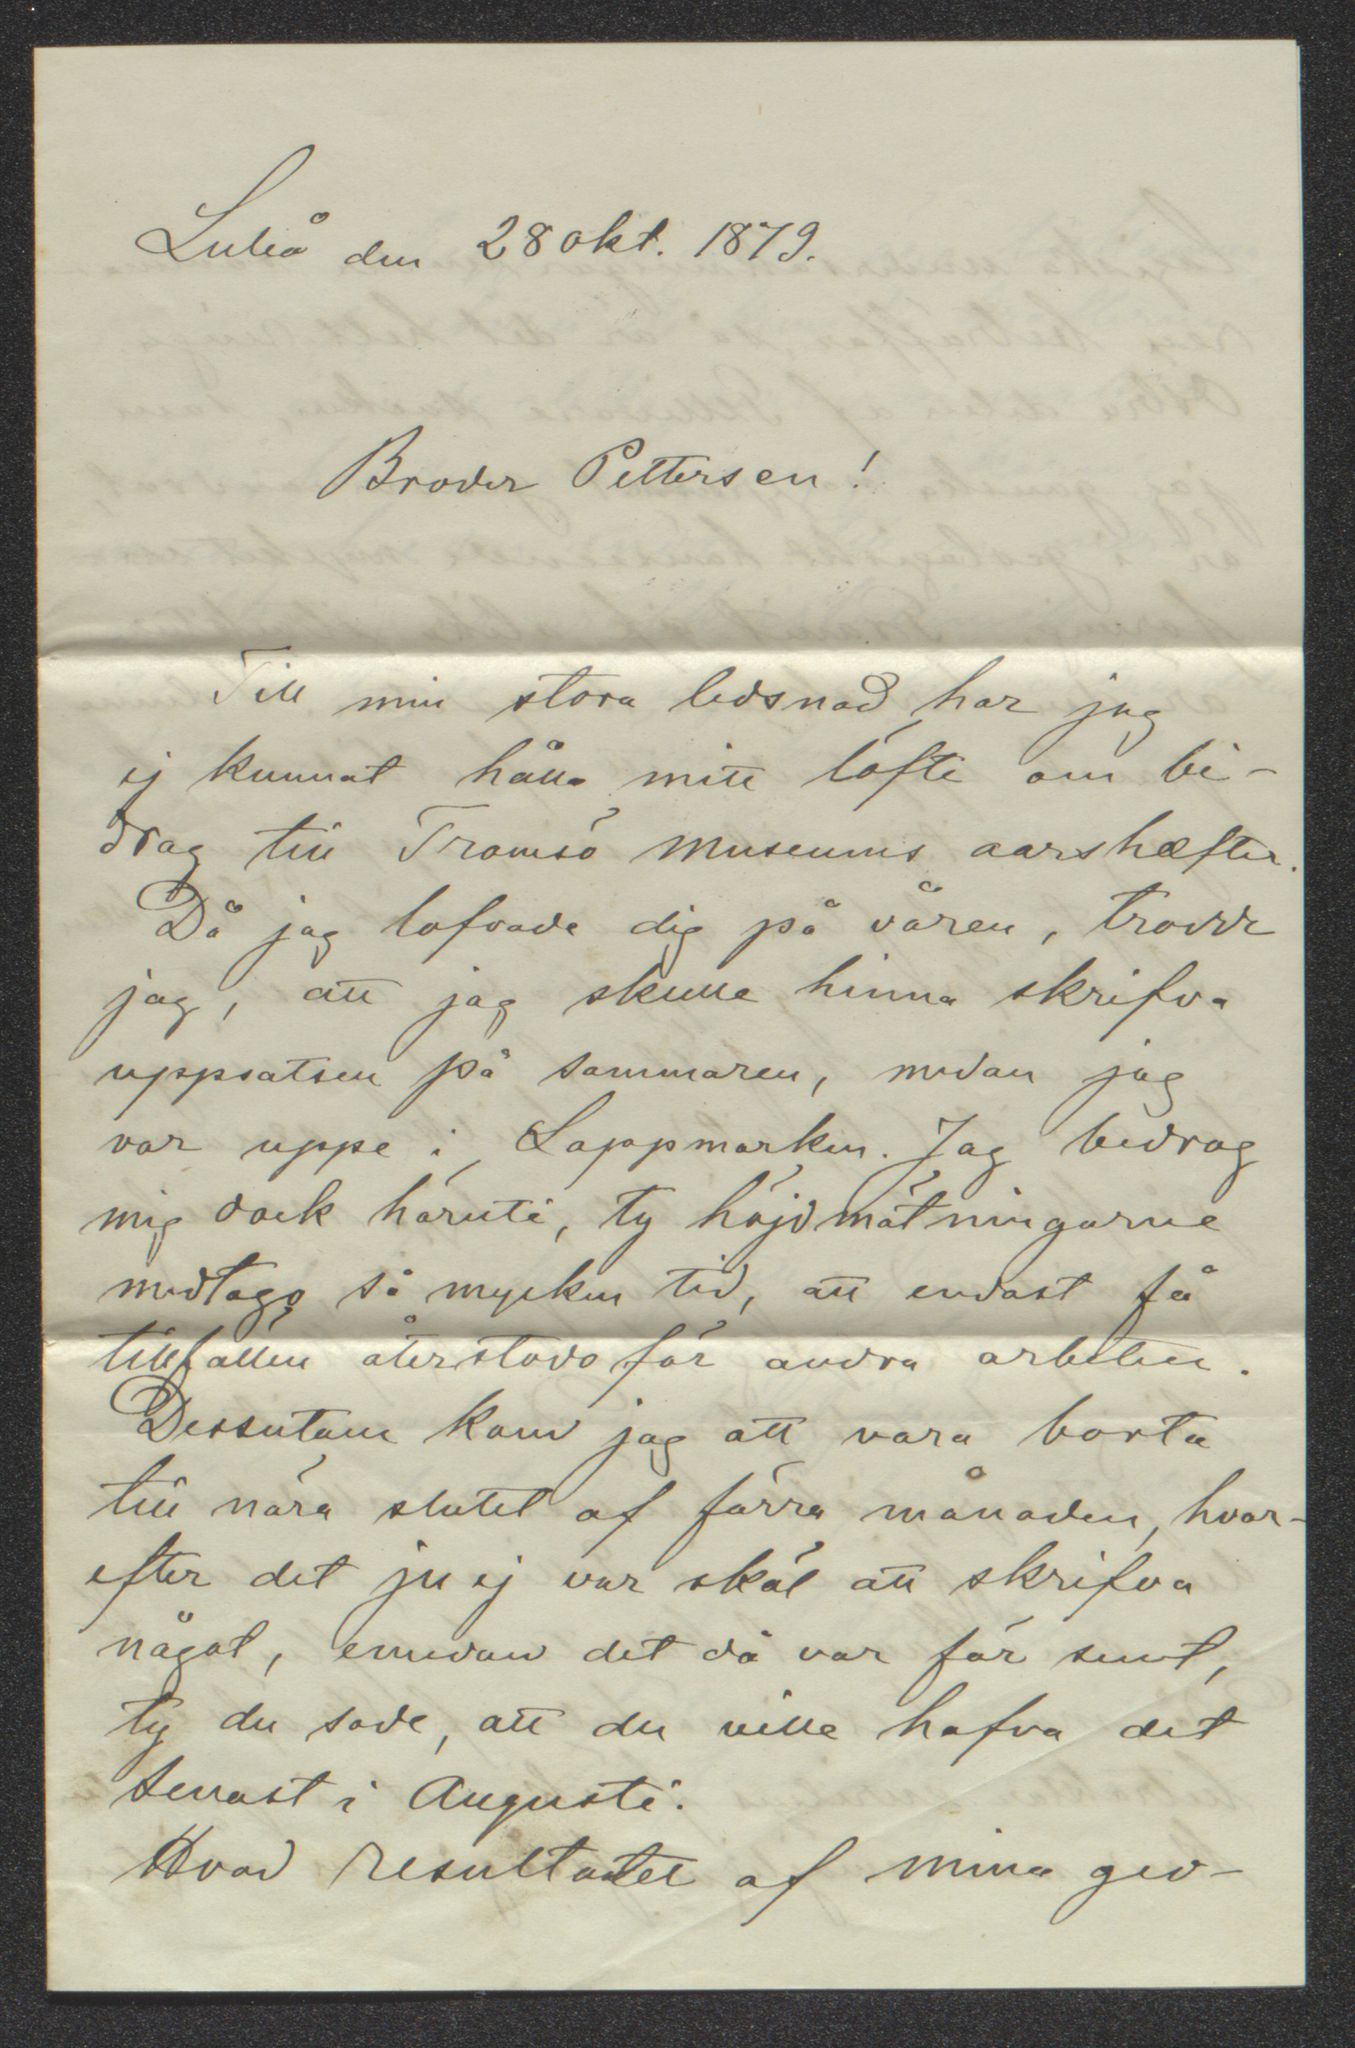 Luleå den 28 okt. 1879.
Broder Pettersen!
Till min stora ledsnad har jag
ej kunnat hålla mitt löfte om bi-
drag till Tromsö museums aarshæfter.
Då jag lofvade dig på våren, trodde
jag, att jag skulle hinna skrifva
uppsatsen på sommaren, medan jag
var uppe i Lappmarken. Jag bedrog
mig dock häruti, ty höjdmätningarne
medtogo så mycken tid, att endast få
tillfällen återstodo för andra arbeten.
Dessutom kom jag att vara borta
till nära slutet af förra månaden, hvar-
efter det ju ej var skäl att skrifva
något, emedan det då var för sent,
ty du sade, att du ville hafva det
senast i Augusti.
Hvad resultatet af mina geo-